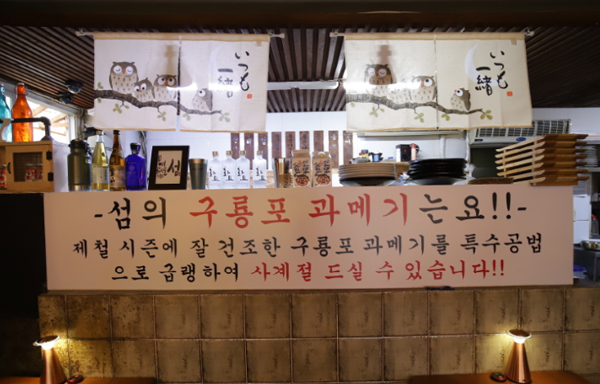 いつも
一緒
いつも
一緒
섬
-섬의 구룡포 과메기는요!!-
제철 시즌에 잘 건조한 구룡포 과메기를 특수공법
으로 급랭하여 사계절 드실 수 있습니다!!